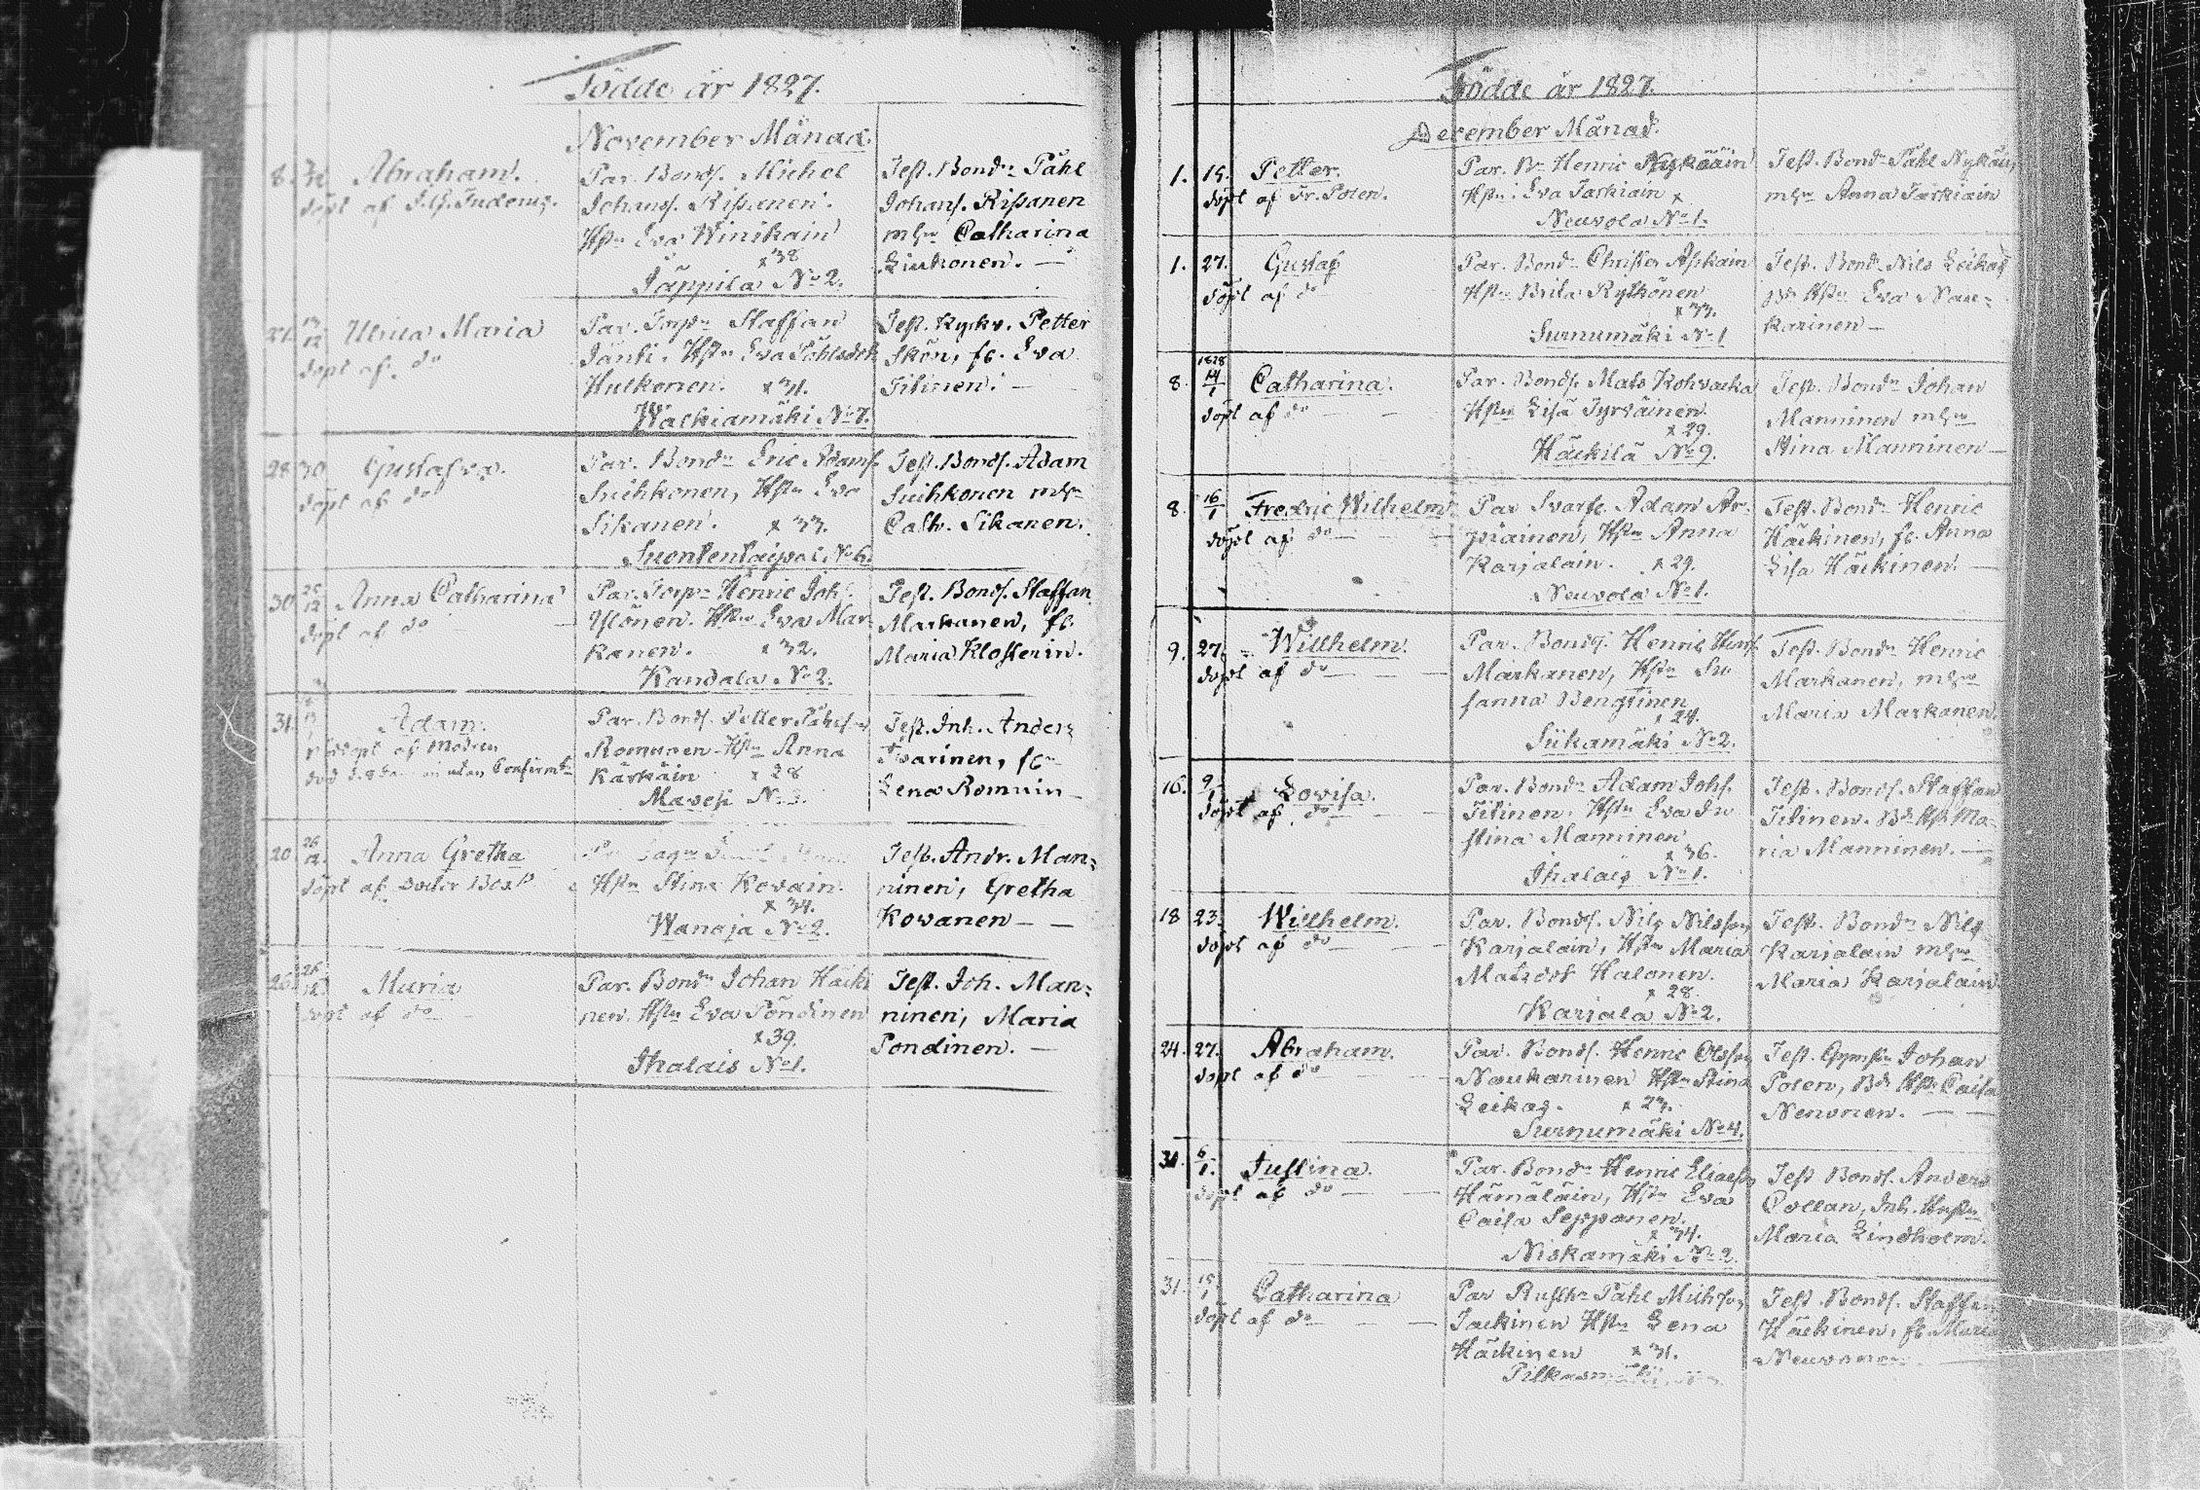 Födde år 1827.
November Månad.
8. Abraham.
döpt af
Par. Bonds. Michel
Johans. Rissanen.
Hstu Eva Winikain
x 38
Jäppilä No 2.
Test. Bondn Påhl
Johans. Rissanen
mhu Catharina
Liukonen. —
Ulrica Maria
döpt af do
Par. Torpn Staffan
Jänti. Hstu Eva Påhlsdotr
Hulkonen. x 31.
Walkiamäki No 7.
Test. Kyrkv. Petter
Skön, fl. Eva
Titinen. —
28 30 Gustafva.
döpt af do
Par. Bondn Eric Adams.
Suihkonen, Hstu Eva
Sikanen. x 33.
Suontentaipal. No 6.
Test. Bonds. Adam
Suihkonen mhu
Cath. Sikanen.
30 25/12 Anna Catharina
döpt af do —
Par. Torpn Henric Johs.
Ylönen. Hstu Eva Mar-
kanen. x 32.
Kandala No 2.
Test. Bonds. Staffan
Markanen, fl.
Maria Klosterin.
31. Adam.
nöddöpt af modren
Par. Bonds. Petter Påhlson
Romunen Hstu Anna
Kärkäin x 28
Mavesi No 3.
Test. Inh. Anders
Ivarinen, fl.
Lena Romuin —
20 26/12 Anna Gretha
döpt af
Hstu Stina Kovain.
x 34.
Wanaja No 2.
Test. Andr. Man-
ninen, Gretha
Kowanen — —
26 26/12 Maria
döpt af do —
Par. Bondn Johan Häcki
nen. Hstu Eva Pöndinen
x 39.
Ihalais No 1.
Test. Joh. Man-
ninen, Maria
Pondinen. —
Födde år 1827.
December Månad.
1. 15. Petter.
döpt af Fr. Polen.
Par. Bn Henric Nykäin
Hstu Eva Tarkiain x
Neuvola No 1.
Test. Bondn Påhl Nykäin
mhu Anna Tarkiain
1. 27. Gustaf
döpt af do
Par. Bondn Christer Askain
Hstu Brita Rytkönen
x 33.
Surnumäki No 1
Test. Bond. Nils Leikas
Eva Nau-
karinen —
8. 1828 14/1 Catharina.
döpt af do — —
Par. Bonds. Mats Kohvacka
Hstu Lisa Tyrväinen.
x 29.
Häckilä No 9.
Test. Bondn Johan
Manninen mhu
Stina Manninen —
8. 16/1 Fredric Wilhelm
döpt af do — — —
Par Svarfv. Adam Ar-
piainen, Hstu Anna
Karjalain. x 29.
Neuvola No 1.
Test. Bondn Henric
Häckinen, fl. Anna
Lisa Häckinen. —
9. 27. Willhelm.
döpt af do — — —
Par. Bonds. Henric Henrs.
Markanen, Hstu Su
sanna Bengtinen
x 24.
Siikamäki No 2.
Test. Bondn Henric
Markanen, mhu
Maria Markanen.
16. 9/1 Lovisa.
döpt af do — — —
Par. Bondn Adam Johs.
Titinen, Hstu Eva Ju
stina Manninen
x 36.
Ihalais No 1.
Test. Bonds. Staffan
Titinen. Bds Hstu Ma-
ria Manninen. —
18 23. Willhelm.
döpt af do — —
Par. Bonds. Nils Nilsson
Karjalain, Hstu Maria
Matsdot Halonen.
x 28.
Karjala No 2.
Test. Bondn Nils
Karjalain mhu
Maria Karjalain
24. 27. Abraham.
döpt af do — —
Par. Bonds. Henric Olsson
Naukarinen Hstu Stina
Leikas. x 23.
Surnumäki No 4.
Test. Johan
Polen, Bds Hstu Caisa
Nenonen. — —
31. 6/1. Justina.
döpt af do — —
Par. Bondn Henric Eliaeson
Hämäläin, Hstu Eva
Caisa Seppanen.
x 34.
Niskamäki No 2
Test Bonds. Anders
Collan, Inh. Hustu
Maria Lindholm.
31. 15/1 Catharina
döpt af do — —
Par Påhl Michson
Jackinen Hstu Lena
Häckinen x 31.
Test. Bonds. Staffan
Häckinen, fl. Maria
Neuvonen. —